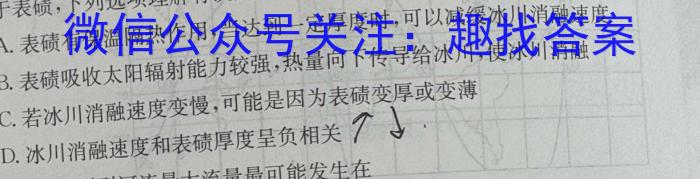 于表碛,下列选项理解有误的是
微信公众号关注:趣找答案
A. 表碛有保温隔热作用,当达到一定厚度时,可以减缓冰川消融速度
B. 表碛吸收太阳辐射能力较强,热量向下传导给冰川,使冰川消融
C. 若冰川消融速度变慢,可能是因为表碛变厚或变薄
D. 冰川消融速度和表碛厚度呈负相关
流量最大流量最可能发生在